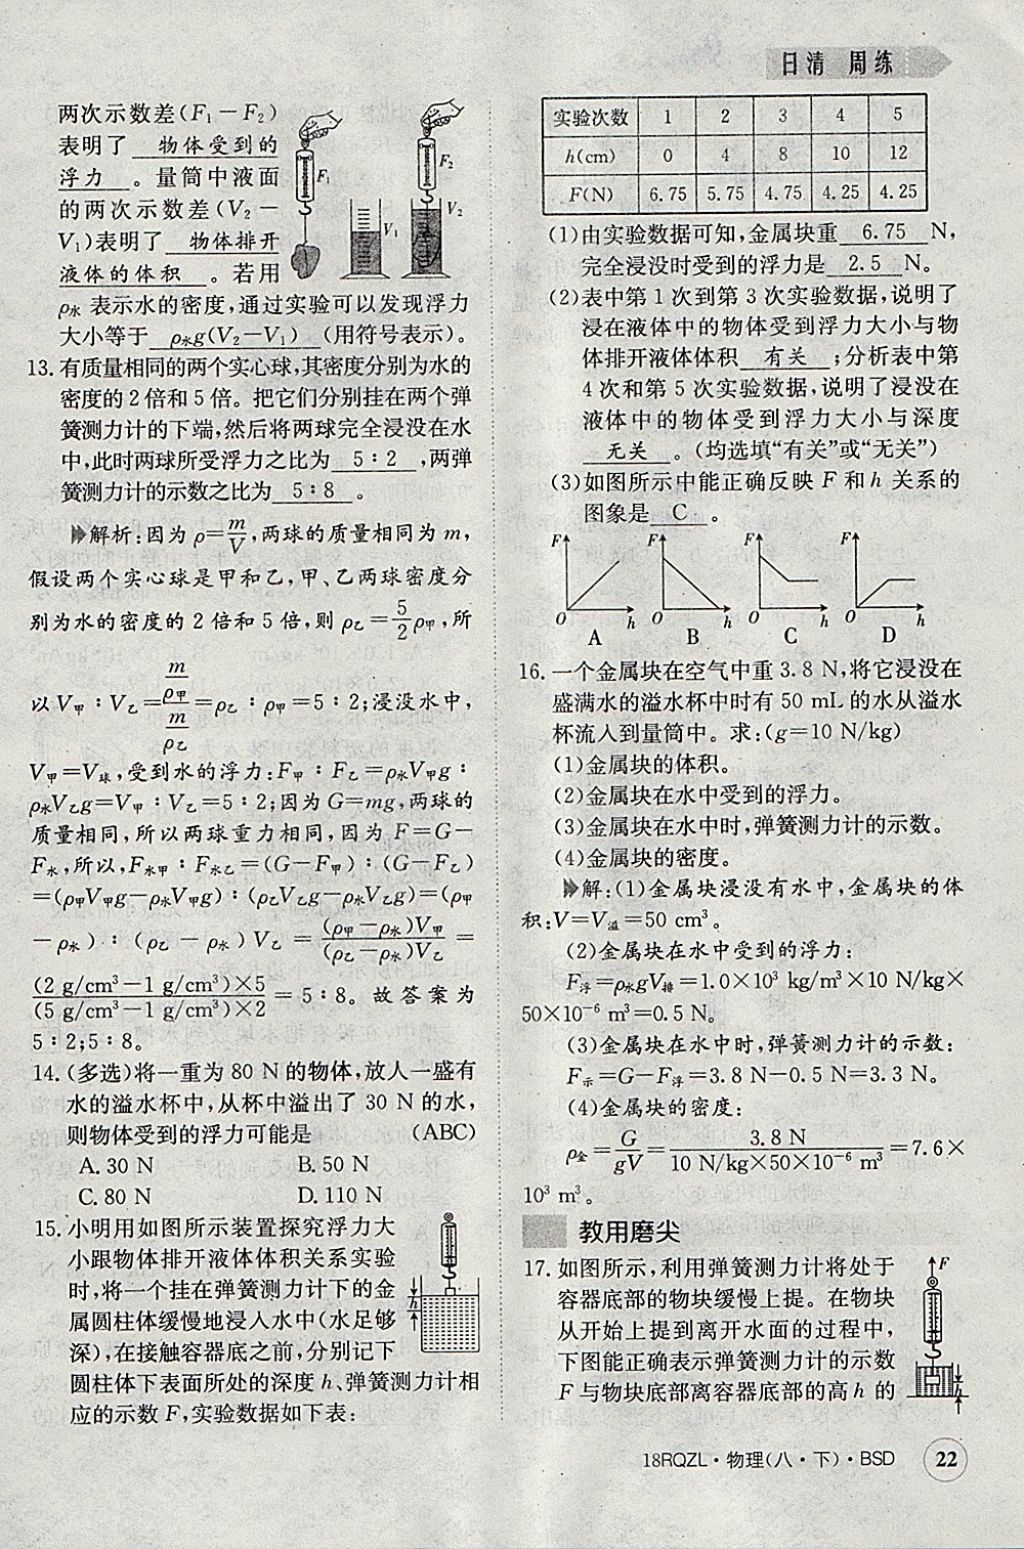 日清 周练
两次示数差(F₁－F₂)
表明了 物体受到的
浮力 。量筒中液面
的两次示数差(V₂－
V₁)表明了 物体排开
液体的体积 。若用
ρ水 表示水的密度,通过实验可以发现浮力
大小等于 ρ水g(V₂－V₁) (用符号表示)。
F₁
F₂
V₁
V₂
13.有质量相同的两个实心球,其密度分别为水的
密度的2倍和5倍。把它们分别挂在两个弹
簧测力计的下端,然后将两球完全浸没在水
中,此时两球所受浮力之比为 5∶2 ,两弹
簧测力计的示数之比为 5∶8 。
解析:因为ρ=m/V,两球的质量相同为m,
假设两个实心球是甲和乙,甲、乙两球密度分
别为水的密度的2倍和5倍,则ρ乙=5/2ρ甲,所
以V甲∶V乙=(m/ρ甲)/(m/ρ乙)=ρ乙∶ρ甲=5∶2;浸没水中,
V甲=V球,受到水的浮力:F甲∶F乙=ρ水V甲g∶
ρ水V乙g=V甲∶V乙=5∶2;因为G=mg,两球的
质量相同,所以两球重力相同,因为F=G－
F水,所以,F水甲∶F水乙=(G－F甲)∶(G－F乙)
=(ρ甲V甲g－ρ水V甲g)∶(ρ乙V乙g－ρ水V乙g)=(ρ甲
－ρ水)∶(ρ乙－ρ水)V乙=(ρ甲－ρ水)V甲/(ρ乙－ρ水)V乙=
(2 g/cm³－1 g/cm³)×5/(5 g/cm³－1 g/cm³)×2=5∶8。故答案为
5∶2;5∶8。
14.(多选)将一重为80 N的物体,放人一盛有
水的溢水杯中,从杯中溢出了30 N的水,
则物体受到的浮力可能是 (ABC)
A.30 N B.50 N
C.80 N D.110 N
15.小明用如图所示装置探究浮力大
小跟物体排开液体体积关系实验
时,将一个挂在弹簧测力计下的金
属圆柱体缓慢地浸入水中(水足够
深),在接触容器底之前,分别记下
圆柱体下表面所处的深度h、弹簧测力计相
应的示数F,实验数据如下表:
h
实验次数 1 2 3 4 5
h(cm) 0 4 8 10 12
F(N) 6.75 5.75 4.75 4.25 4.25
(1)由实验数据可知,金属块重 6.75 N,
完全浸没时受到的浮力是 2.5 N。
(2)表中第1次到第3次实验数据,说明了
浸在液体中的物体受到浮力大小与物
体排开液体体积 有关 ;分析表中第
4次和第5次实验数据,说明了浸没在
液体中的物体受到浮力大小与深度
无关 。(均选填“有关”或“无关”)
(3)如图所示中能正确反映F和h关系的
图象是 C 。
F F F F
O h O h O h O h
A B C D
16.一个金属块在空气中重3.8 N,将它浸没在
盛满水的溢水杯中时有50 mL的水从溢水
杯流入到量筒中。求:(g=10 N/kg)
(1)金属块的体积。
(2)金属块在水中受到的浮力。
(3)金属块在水中时,弹簧测力计的示数。
(4)金属块的密度。
解:(1)金属块浸没有水中,金属块的体
积:V=V溢=50 cm³。
(2)金属块在水中受到的浮力:
F浮=ρ水gV排=1.0×10³ kg/m³×10 N/kg×
50×10⁻⁶ m³=0.5 N。
(3)金属块在水中时,弹簧测力计的示数:
F示=G－F浮=3.8 N－0.5 N=3.3 N。
(4)金属块的密度:
ρ金=G/gV=3.8 N/10 N/kg×50×10⁻⁶ m³=7.6×
10³ m³。
教用磨尖
17.如图所示,利用弹簧测力计将处于
容器底部的物块缓慢上提。在物块
从开始上提到离开水面的过程中,
下图能正确表示弹簧测力计的示数
F与物块底部离容器底部的高h的
F
h
18RQZL·物理(八·下)·BSD 22